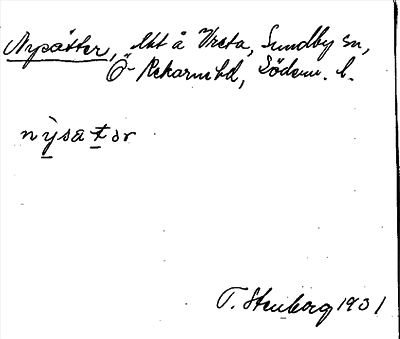 Nysätter, lht å Vreta, Sundby sn,
Ö-Rekarne hd, Söderm. l.
nỳsatər
T. Stenberg 1931